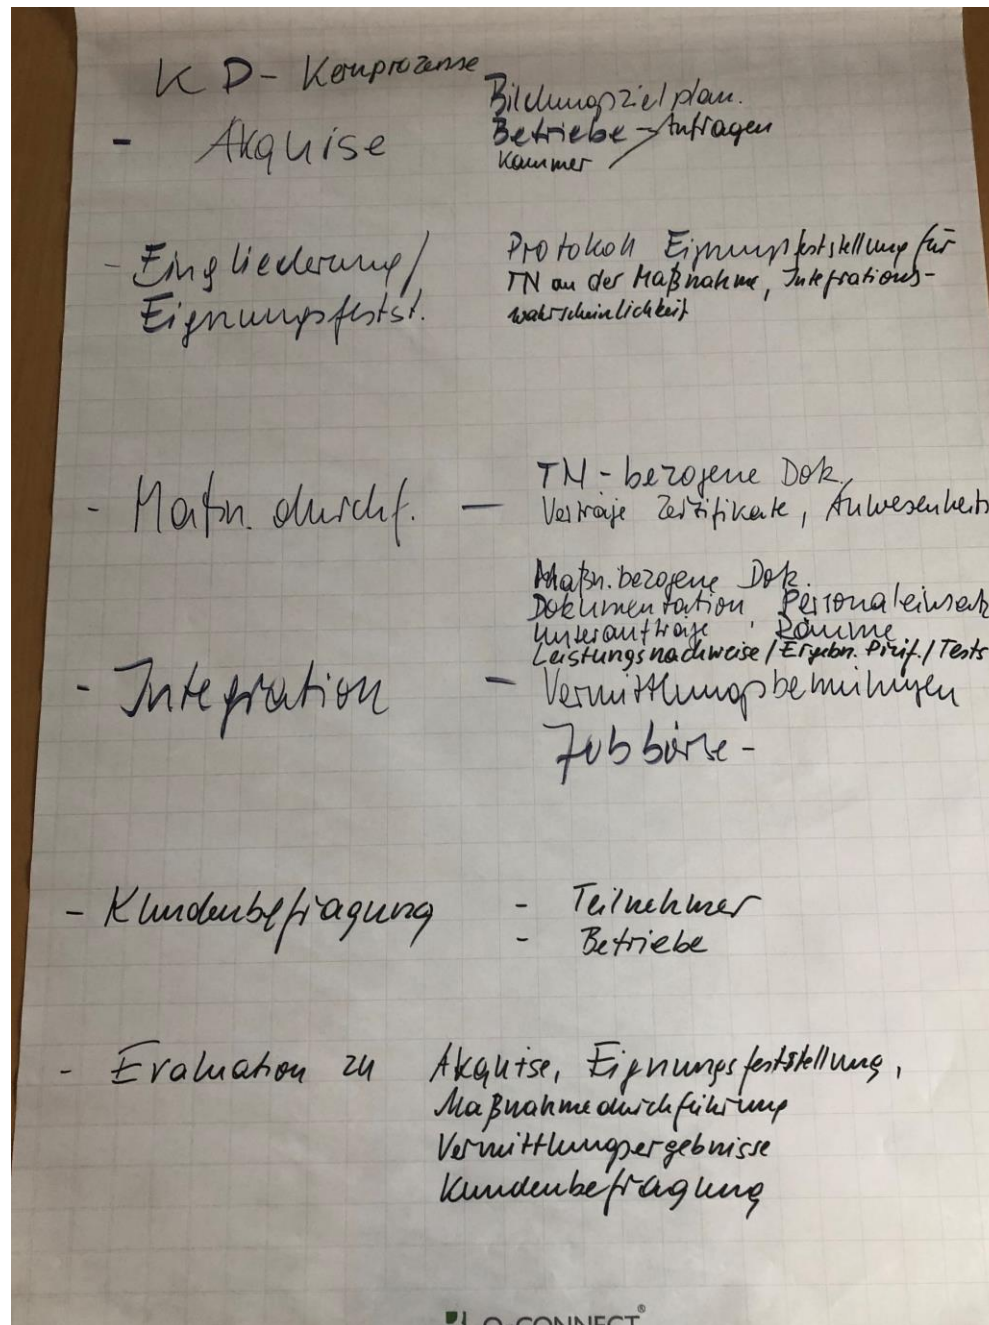 KD - Kernprozesse
- Akquise
Bildungszielplan.
Betriebe - Anfragen
Kammer
- Eingliederung/
Eignungsfestst.
Protokoll Eignungsfeststellung für
TN an der Maßnahme, Integrations-
wahrscheinlichkeit
- Maßn. durchf. -
TN - bezogene Dok.
Verträge Zertifikate, Anwesenheits
Maßn. bezogene Dok.
Dokumentation Personaleinsatz
Unteraufträge, Räume
Leistungsnachweise / Ergebn. Prüf. / Tests
- Integration -
Vermittlungsbemühungen
Jobbörse -
- Kundenbefragung
- Teilnehmer
- Betriebe
- Evaluation zu Akquise, Eignungsfeststellung,
Maßnahmedurchführung
Vermittlungsergebnisse
Kundenbefragung
Q-CONNECT®